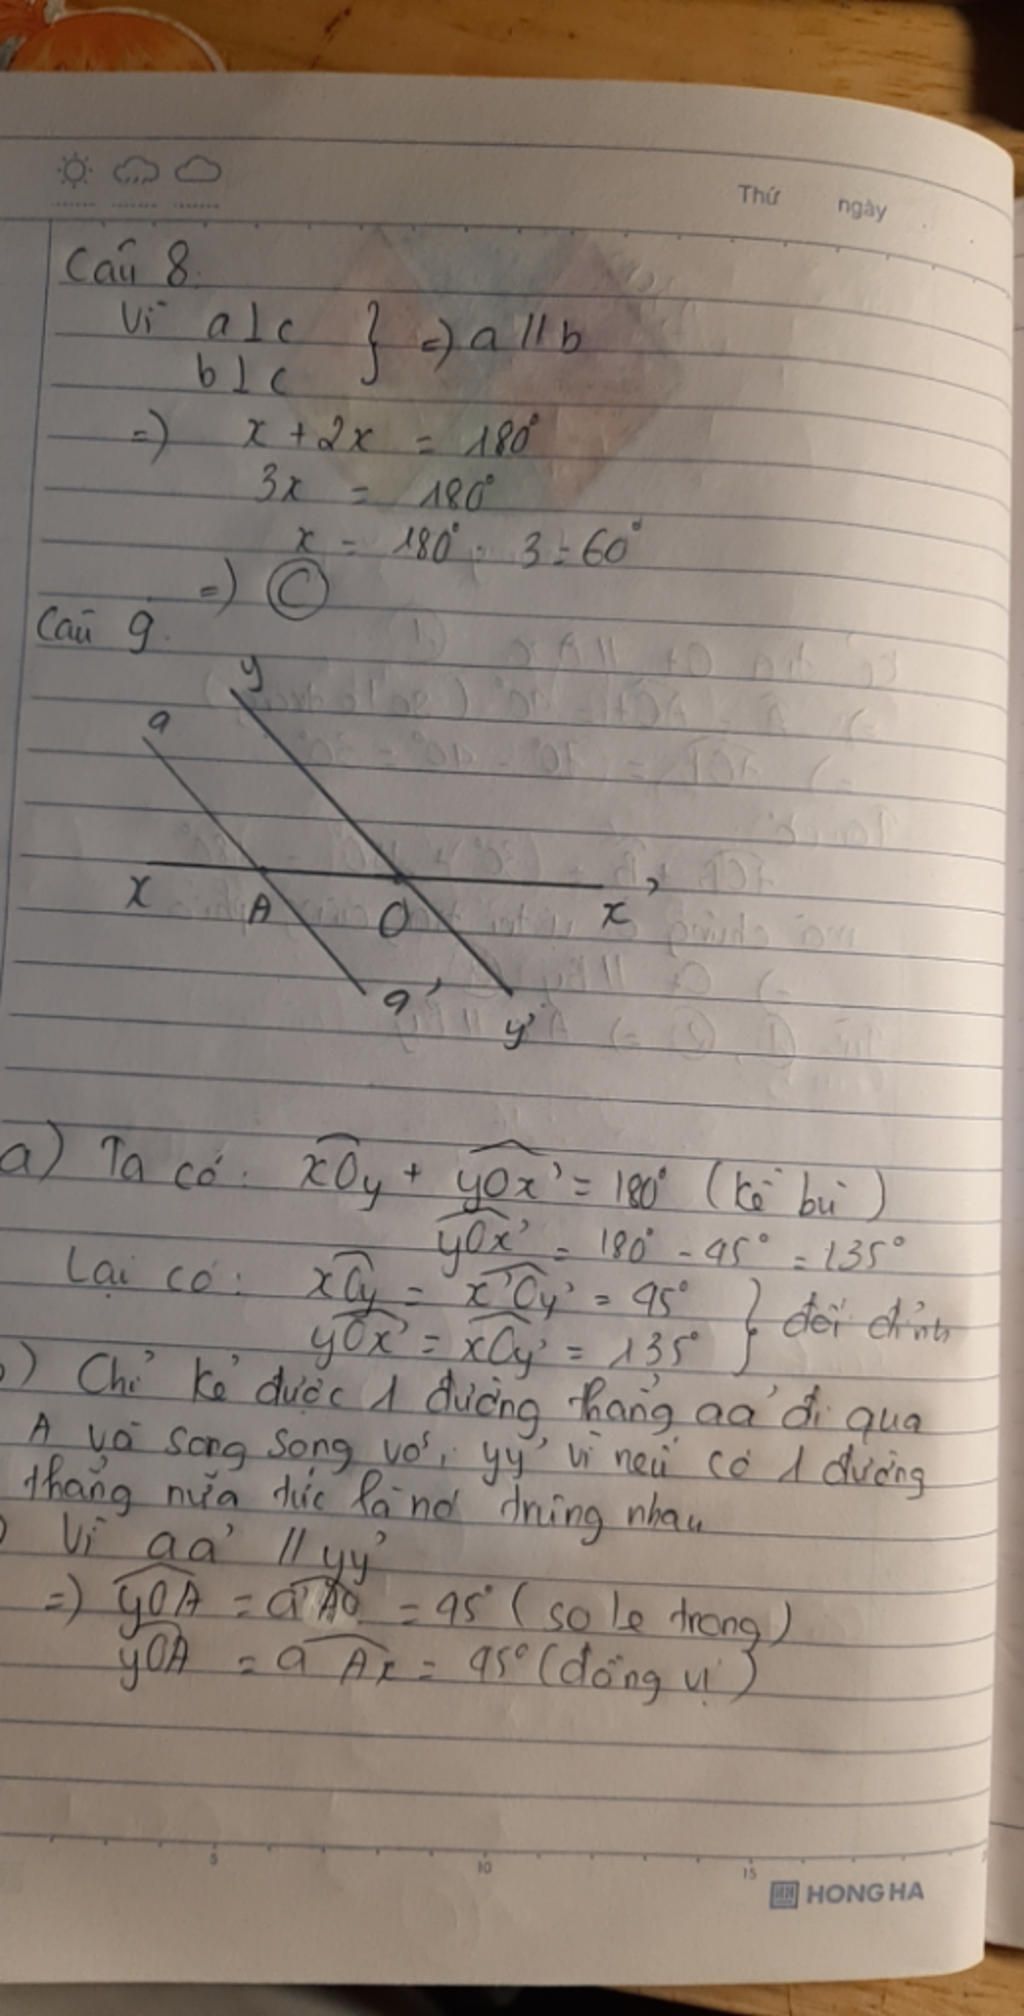 Thứ ngày
Câu 8.
Vì a⊥c } => a // b
b⊥c
=) x + 2x = 180°
3x = 180°
x = 180° : 3 = 60°
=) C
Câu 9.
y
a
x A O x'
a'
y'
a) Ta có: xOy + yOx' = 180° (kề bù)
yOx' = 180° - 45° = 135°
Lại có: xOy = x'Oy' = 45° } đối đỉnh
yOx' = xOy' = 135°
) Chỉ kẻ được 1 đường thẳng aa' đi qua
A và song song với yy' vì nếu có 1 đường
thẳng nữa tức là nó trùng nhau
Vì aa' // yy'
=) yOA = a'AO = 45° (so le trong)
yOA = aAx = 45° (đồng vị)
5 10 15
HONG HA